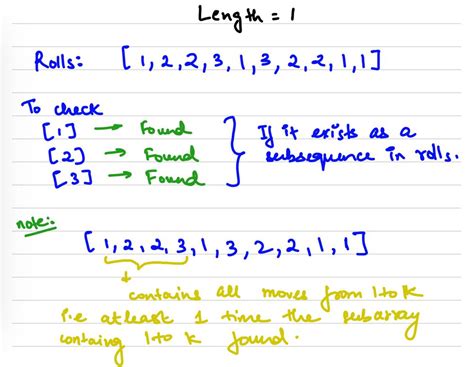 Length = 1
Rolls: [1,2,2,3,1,3,2,2,1,1]
To check
[1] → Found
[2] → Found
[3] → Found
If it exists as a
subsequence in rolls.
note:
[1,2,2,3,1,3,2,2,1,1]
contains all moves from 1 to K
i.e atleast 1 time the subarray
containg 1 to k found.